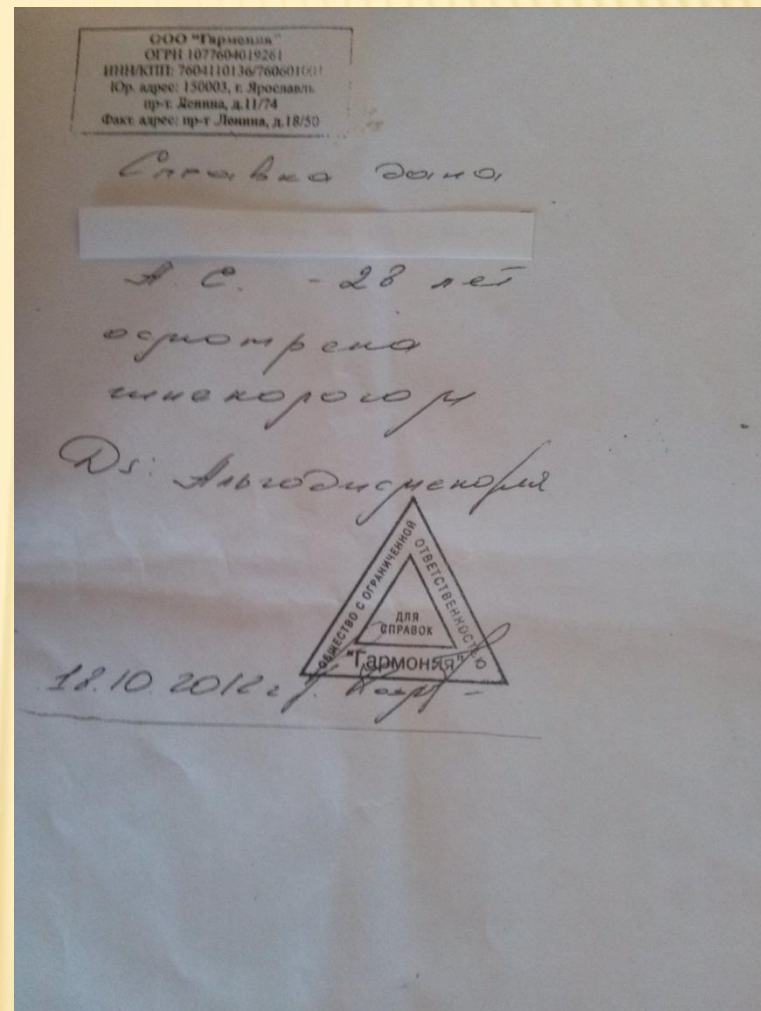 ООО "Гармония"
ОГРН 1077604019261
ИНН/КПП: 7604110136/760601001
Юр. адрес: 150003, г. Ярославль
пр-т. Ленина, д.11/74
Факт. адрес: пр-т Ленина, д.18/50
Справка дана
А. С. - 28 лет
осмотрена
гинекологом
Ds: Альгодисменорея
ОБЩЕСТВО С ОГРАНИЧЕННОЙ ОТВЕТСТВЕННОСТЬЮ
ДЛЯ
СПРАВОК
"Гармония"
18.10.2012 г.